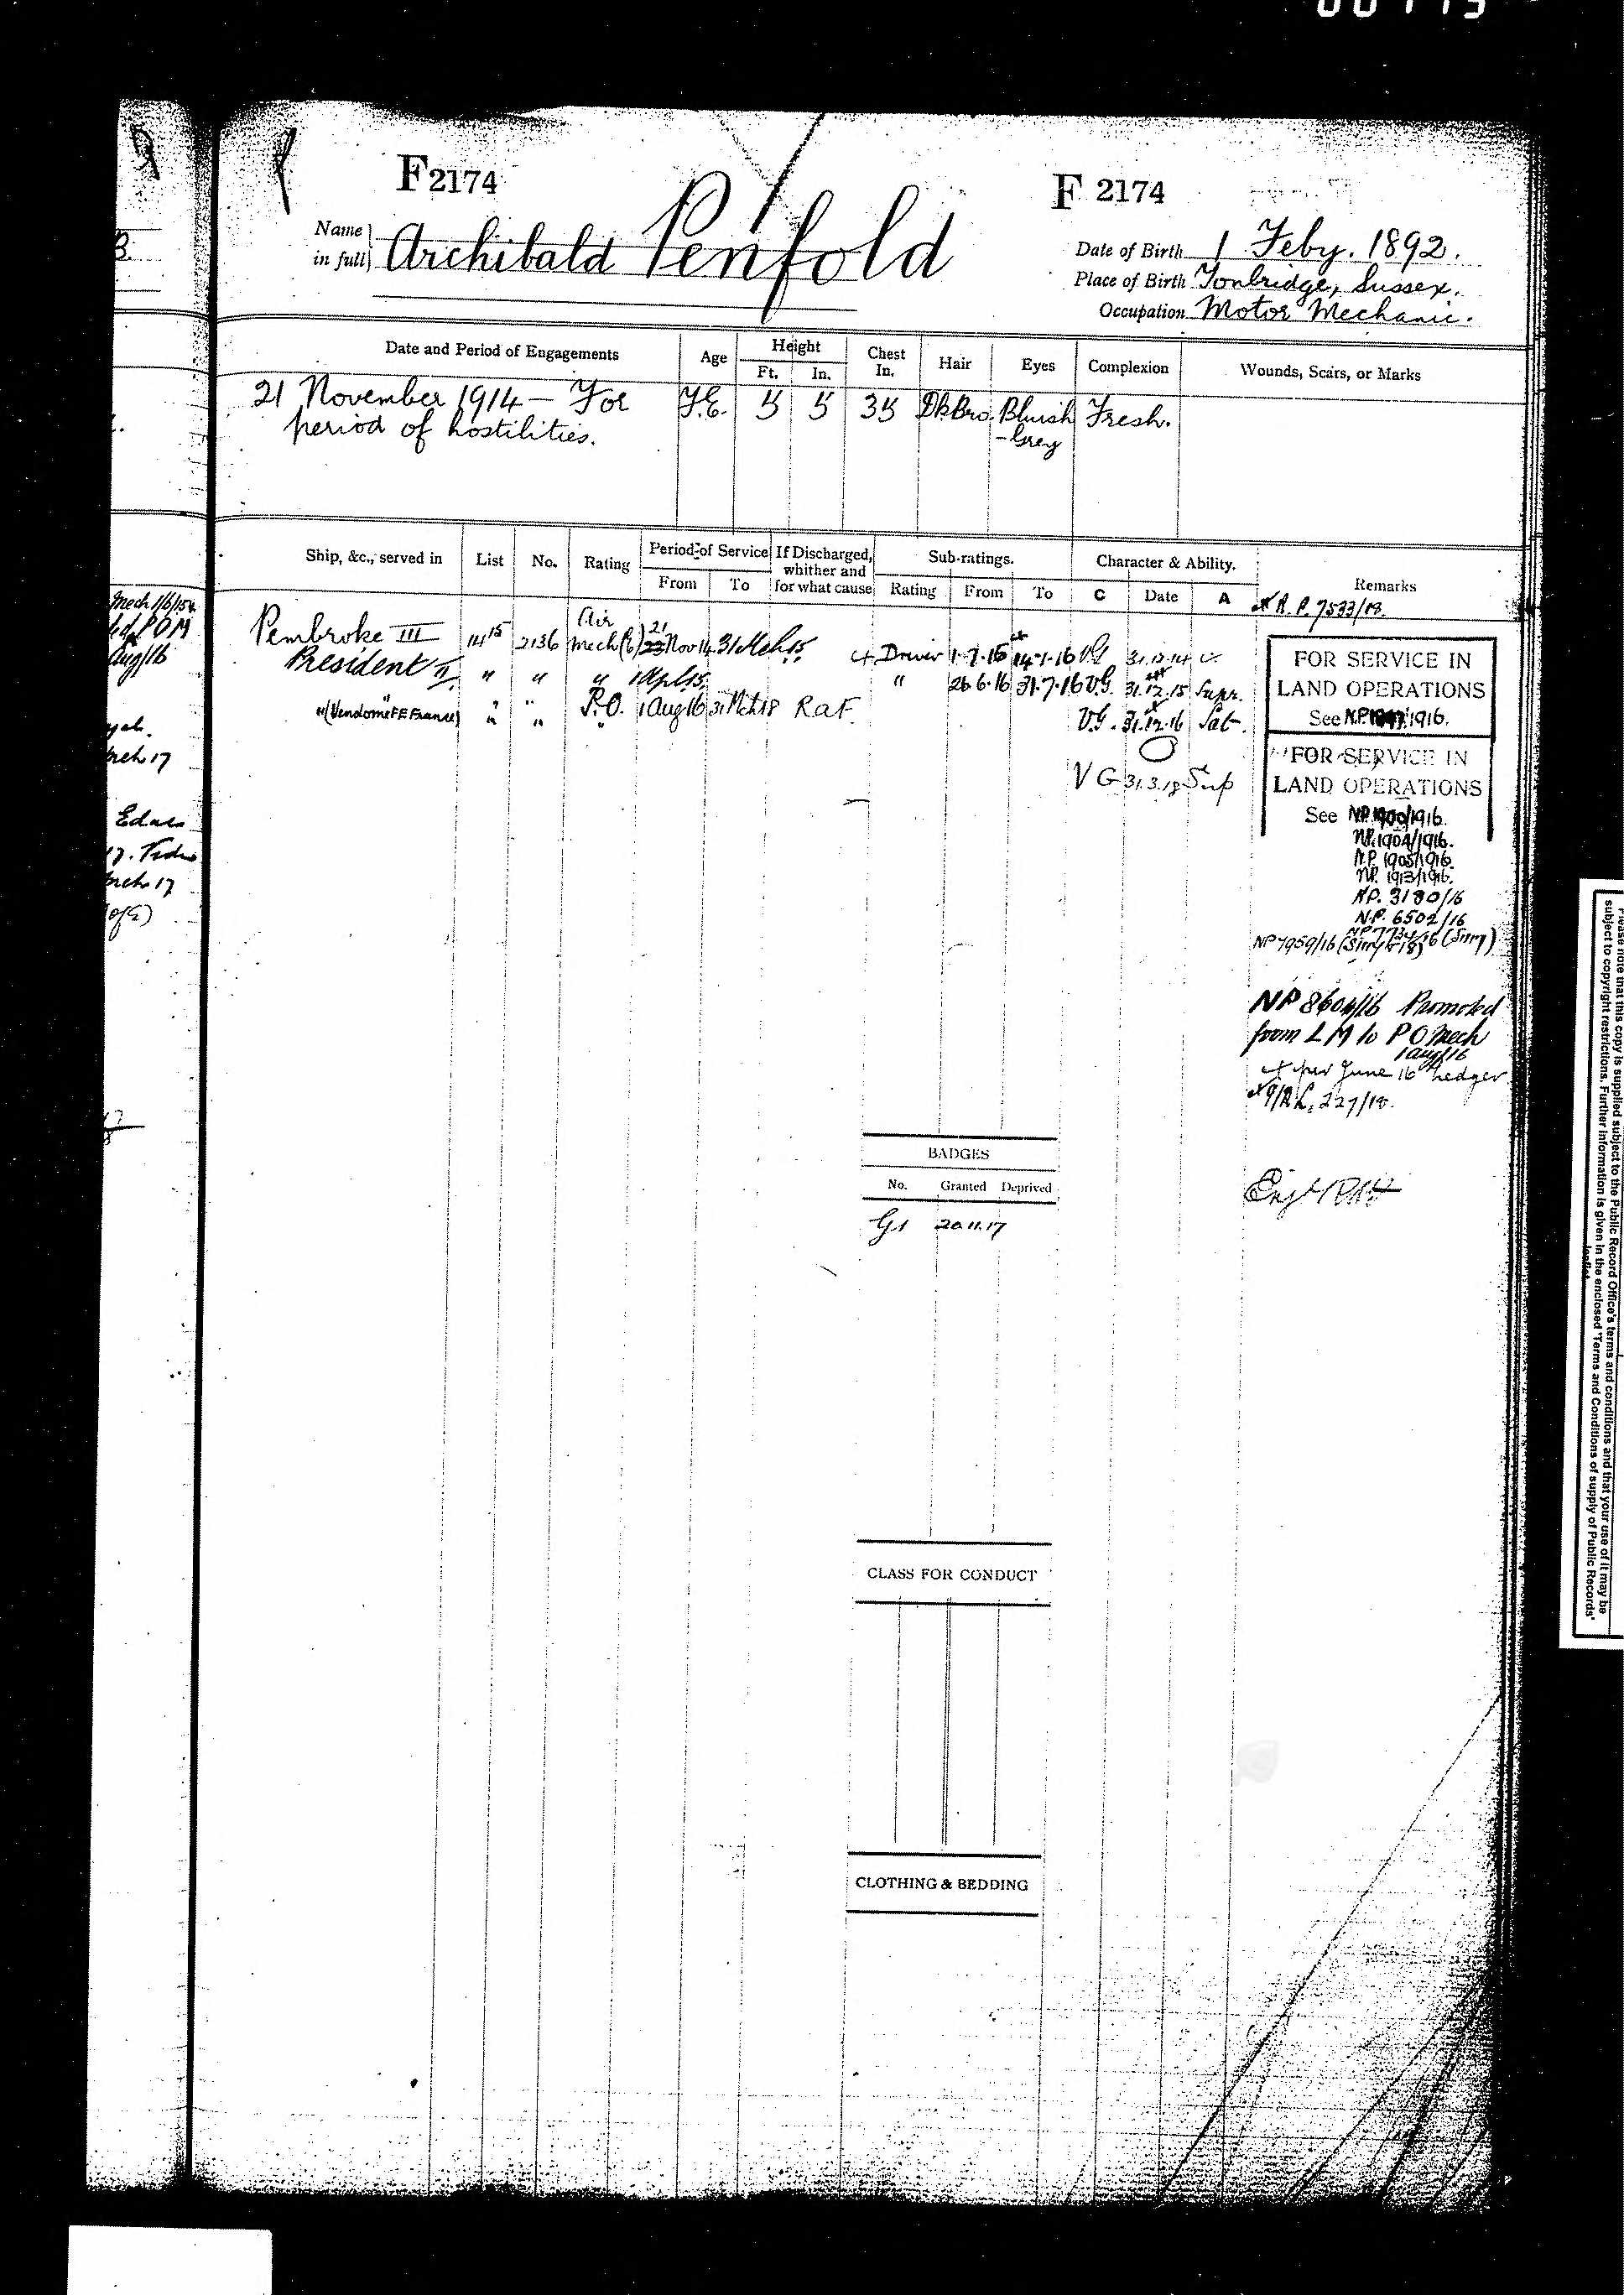 F2174
F 2174
Name in full Archibald Penfold
Date of Birth 1 Feby. 1892.
Place of Birth Tonbridge, Sussex.
Occupation Motor Mechanic.
Date and Period of Engagements Age Height Ft. In. Chest In. Hair Eyes Complexion Wounds, Scars, or Marks
21 November 1914 — For period of hostilities. 5 5 35 Dk Bro. Bluish-Grey Fresh.
Ship, &c., served in List No. Rating Period of Service From To If Discharged, whither and for what cause Sub-ratings. Rating From To Character & Ability. C Date A Remarks
Pembroke III 14 15 2136 Air Mech (E) 21 Nov 14 31 Mch 15. Driver 1.7.15 14.1.16 V.G. 31.12.14
President II " " " 1 Apl 15. " 26.6.16 31.7.16 V.G. 31.12.15 Supr.
" " " P.O. 1 Aug 16 31 Mch 18 R.a.F. V.G. 31.12.16 Sat.
" (Vendome F.F. France) " " "
V G 31.3.18 Sup
FOR SERVICE IN
LAND OPERATIONS
See 1916.
FOR SERVICE IN
LAND OPERATIONS
See NP.1900/1916.
NP.1904/1916.
N.P. 1905/1916.
NP. 1913/1916.
NP. 3180/16
N.P. 6502/16
NP 7734/16
NP 7959/16
NP 8604/16 Promoted
from L M to P O Mech
1 Aug 16
per June 16 Ledger
227/18.
BADGES
No. Granted Deprived
G1 20.11.17
CLASS FOR CONDUCT
CLOTHING & BEDDING
Mech 1/6/15
Aug/16
17
17
Please note that this copy is supplied subject to the Public Record Office's terms and conditions and that your use of it may be
subject to copyright restrictions. Further information is given in the enclosed 'Terms and Conditions of supply of Public Records'
leaflet